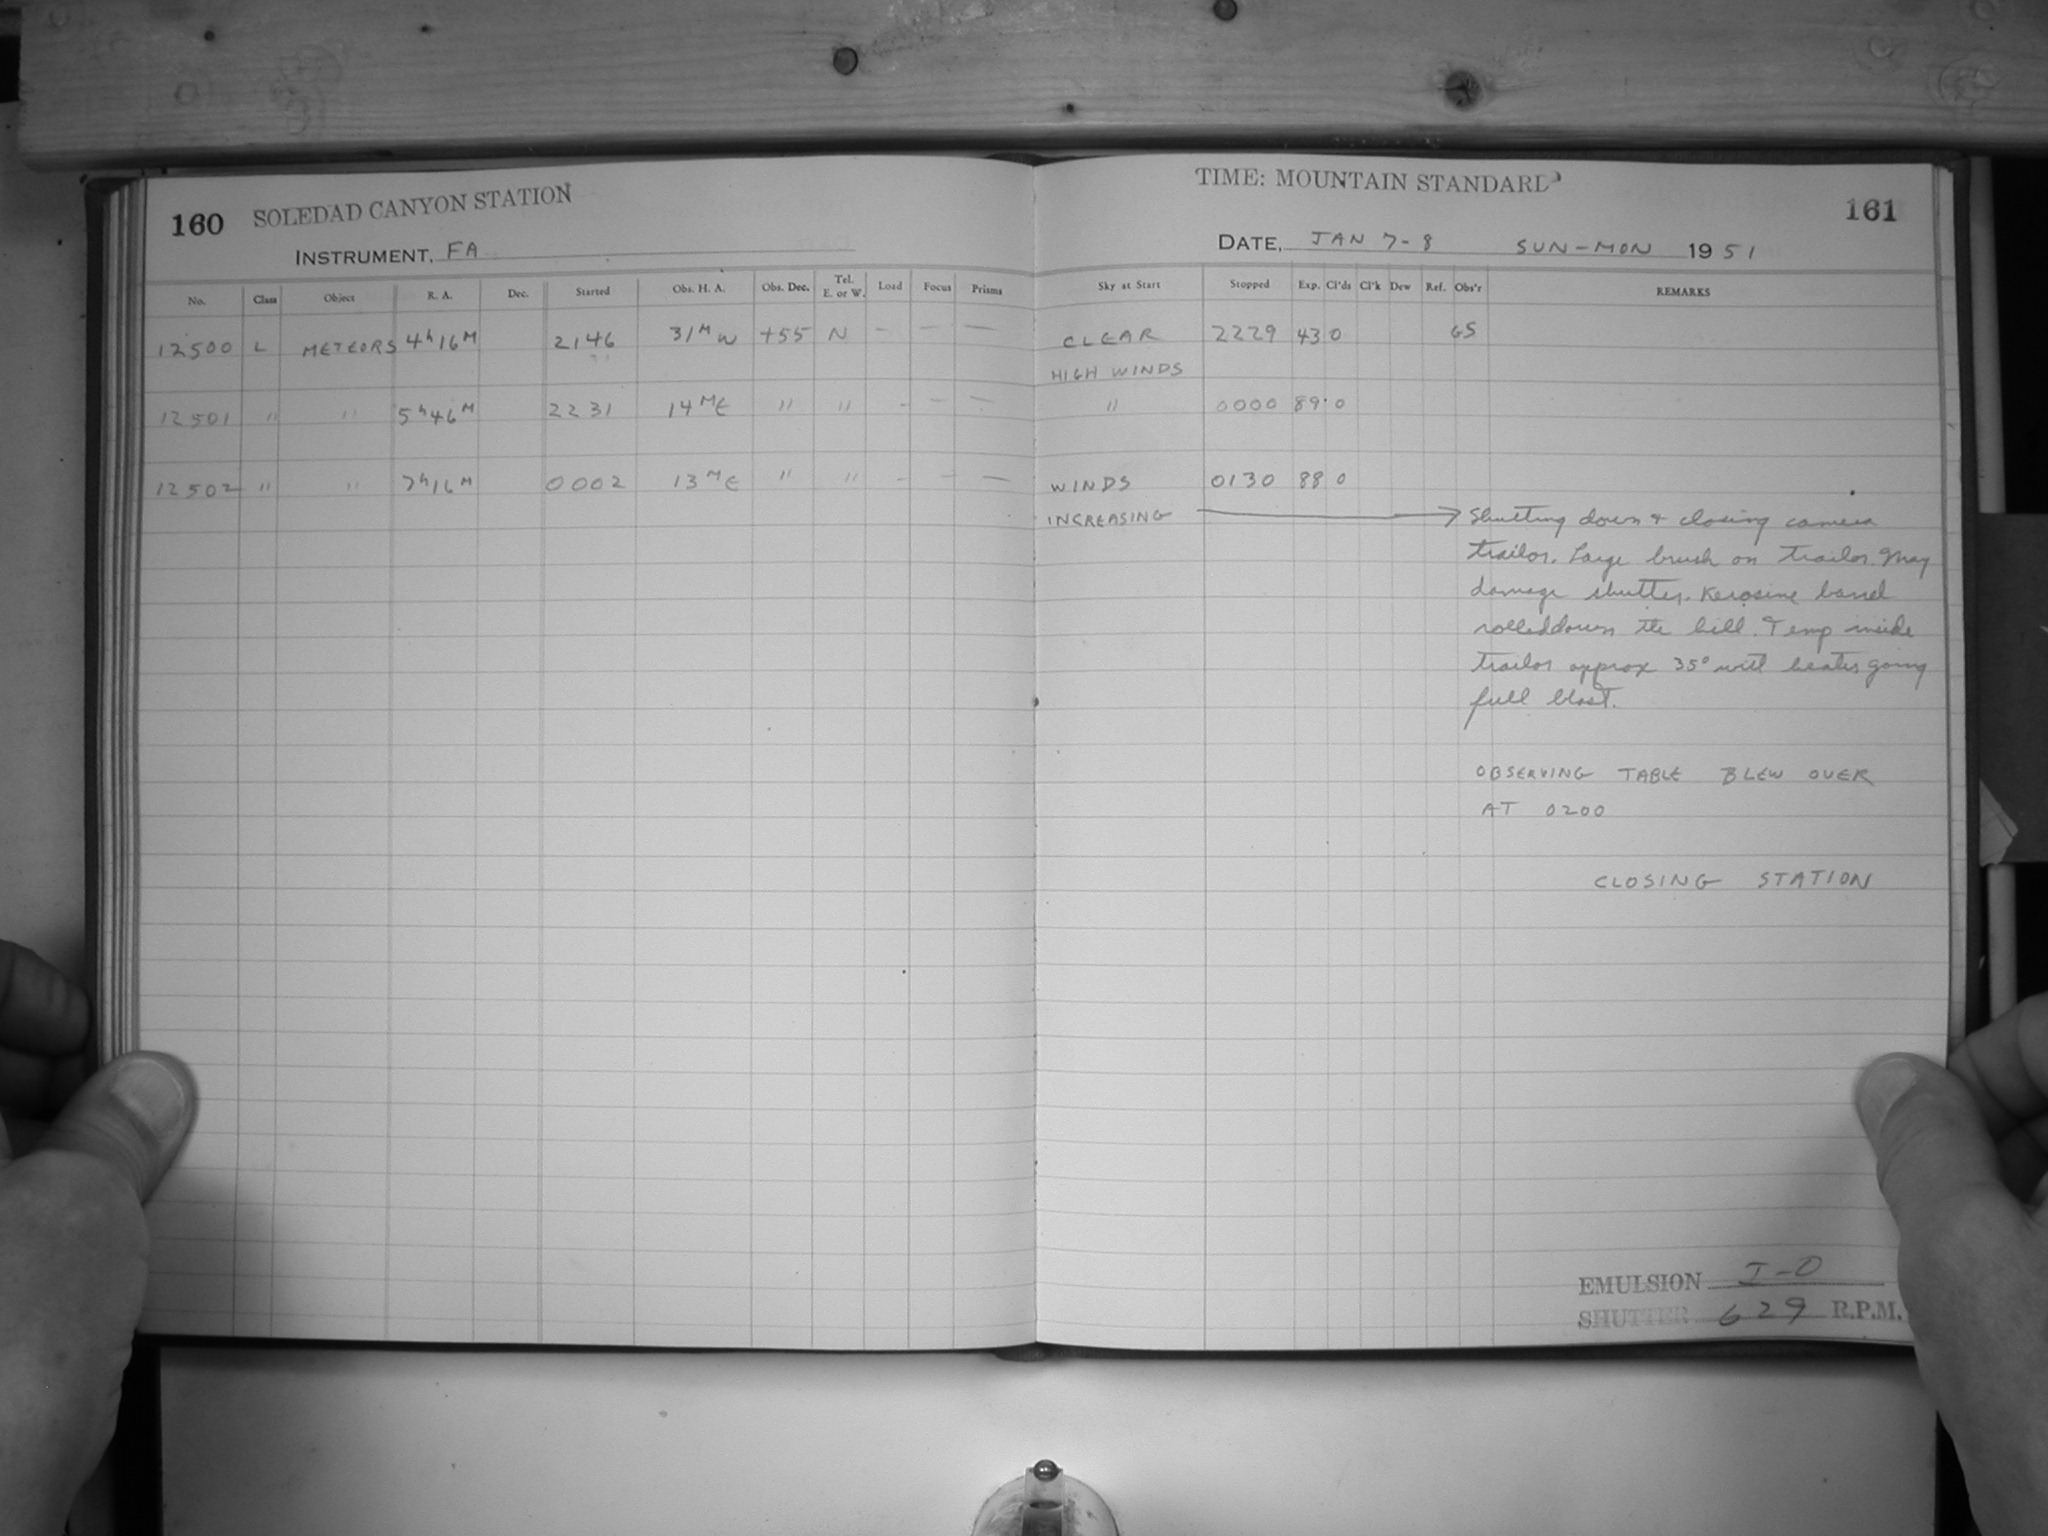 160 SOLEDAD CANYON STATION
INSTRUMENT, FA
No. Class Object R. A. Dec. Started Obs. H. A. Obs. Dec. Tel. E. or W. Load Focus Prisms
12500 L METEORS 4h16M 2146 31M W +55 N — — —
12501 " " 5h46M 2231 14M E " " - — —
12502 " " 7h16M 0002 13M E " " - - —
TIME: MOUNTAIN STANDARD
161
DATE, JAN 7-8 SUN-MON 1951
Sky at Start Stopped Exp. Cl'ds Cl'k Dew Ref. Obs'r REMARKS
CLEAR 2229 43 0 GS
HIGH WINDS
" 0000 89 0
WINDS 0130 88 0
INCREASING → Shutting down + closing camera
trailor. Large brush on trailor. May
damage shutter. Kerosine barrel
rolled down the hill. Temp inside
trailor approx 35° with heater going
full blast.
OBSERVING TABLE BLEW OVER
AT 0200
CLOSING STATION
EMULSION I-O
SHUTTER 629 R.P.M.